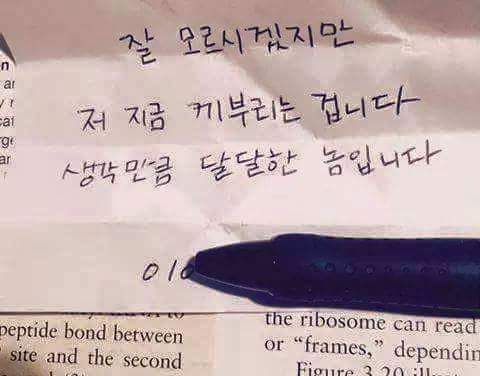 잘 모르시겠지만
저 지금 께부리는 겁니다
생각만큼 달달한 놈입니다
010
peptide bond between
site and the second
the ribosome can read
or “frames,” dependin
Figure 3.20